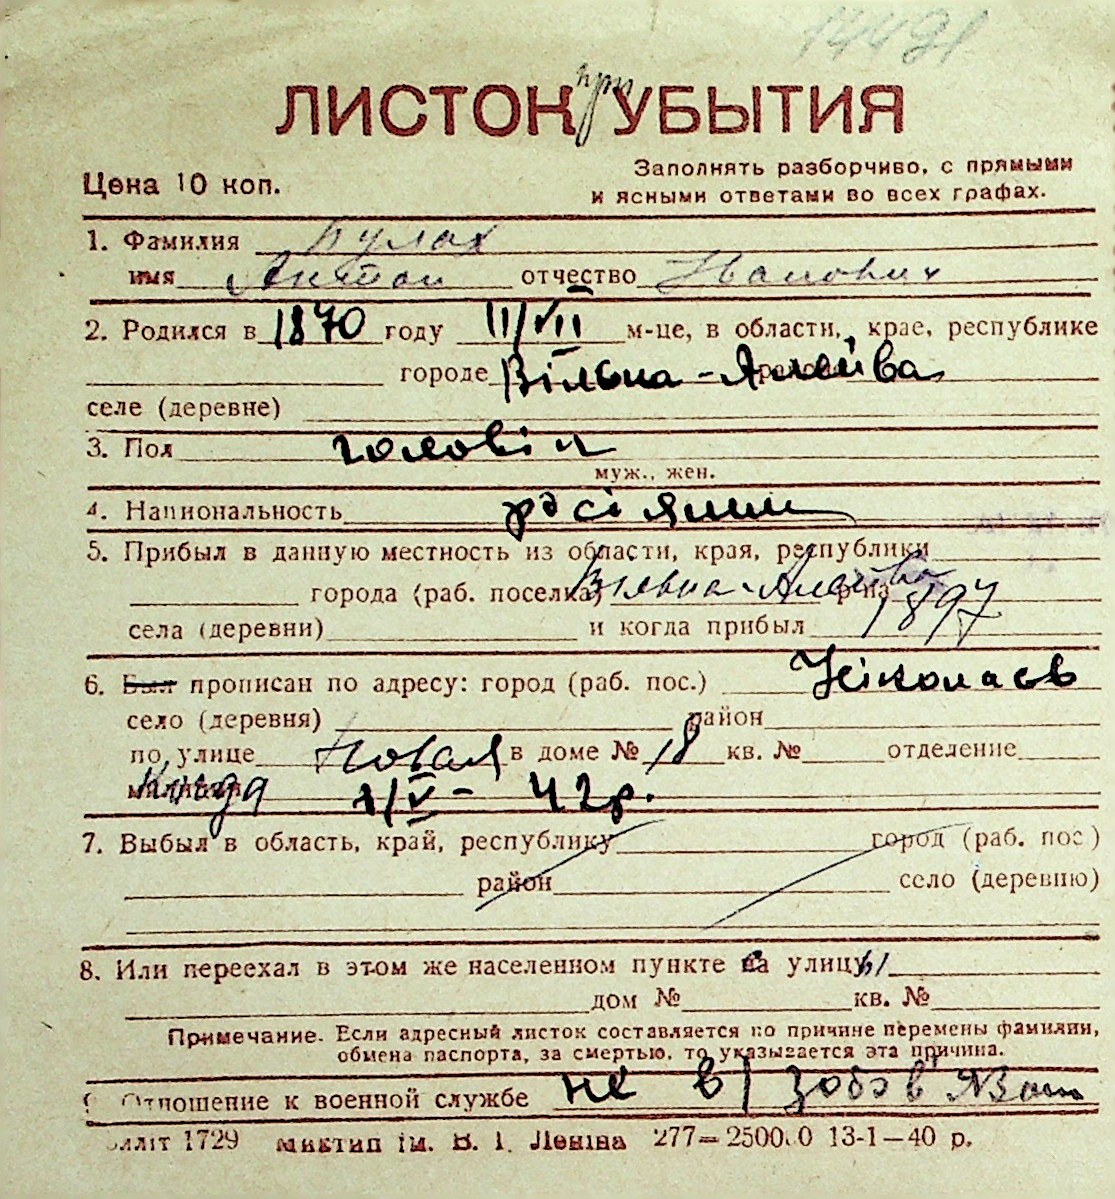 14491
ЛИСТОК при УБЫТИЯ
Цена 10 коп.
Заполнять разборчиво, с прямыми
и ясными ответами во всех графах.
1. Фамилия Кулах
имя Антон отчество Иванович
2. Родился в 1870 году 11/VII м-це, в области, крае, республике
городе Вільна-
селе (деревне)
3. Пол чоловіч
муж., жен.
4. Национальность росіянин
5. Прибыл в данную местность из области, края, республики
города (раб. поселка) Вильна- р-на
села (деревни) и когда прибыл 1897
6. Был прописан по адресу: город (раб. пос.) Ніколаєв
село (деревня) район
по улице Новая в доме № 18 кв. № отделение
милиции Когда 1/V - 42 р.
7. Выбыл в область, край, республику город (раб. пос)
район село (деревню)
8. Или переехал в этом же населенном пункте са улицы
дом № кв. №
Примечание. Если адресный листок составляется по причине перемены фамилии,
обмена паспорта, за смертью, то указывается эта причина.
Отношение к военной службе не в/зобов'язан
1729 ім. В. І. Леніна 277—250000 13-1—40 р.